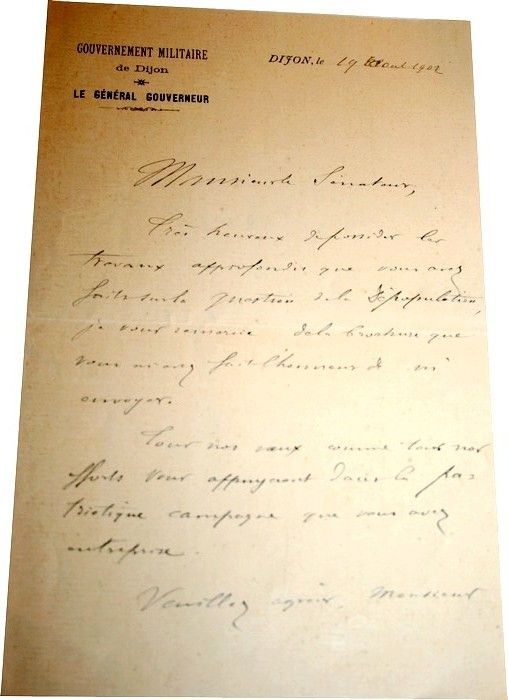 GOUVERNEMENT MILITAIRE
de Dijon
LE GÉNÉRAL GOUVERNEUR
DIJON, le 19 Aout 1902
Monsieur le Sénateur,
Très heureux de posséder les
travaux approfondis que vous avez
faits sur la question de la Dépopulation,
je vous remercie de la brochure que
vous m'avez fait l'honneur de m'
envoyer.
Tous nos vœux comme tous nos
efforts vous appuyeront dans la pa-
triotique campagne que vous avez
entreprise.
Veuillez agréer, Monsieur